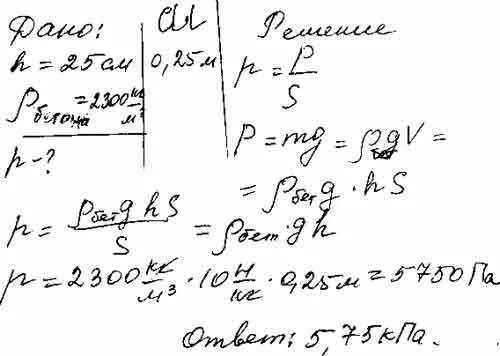 Дано:
h = 25 см
ρбетона = 2300 кг/м³
p - ?
СИ
0,25 м
Решение
p = P/S
P = mg = ρбет gV =
= ρбет g · hS
p = ρбет g h S / S = ρбет · gh
p = 2300 кг/м³ · 10 Н/кг · 0,25 м = 5750 Па
Ответ: 5,75 кПа.